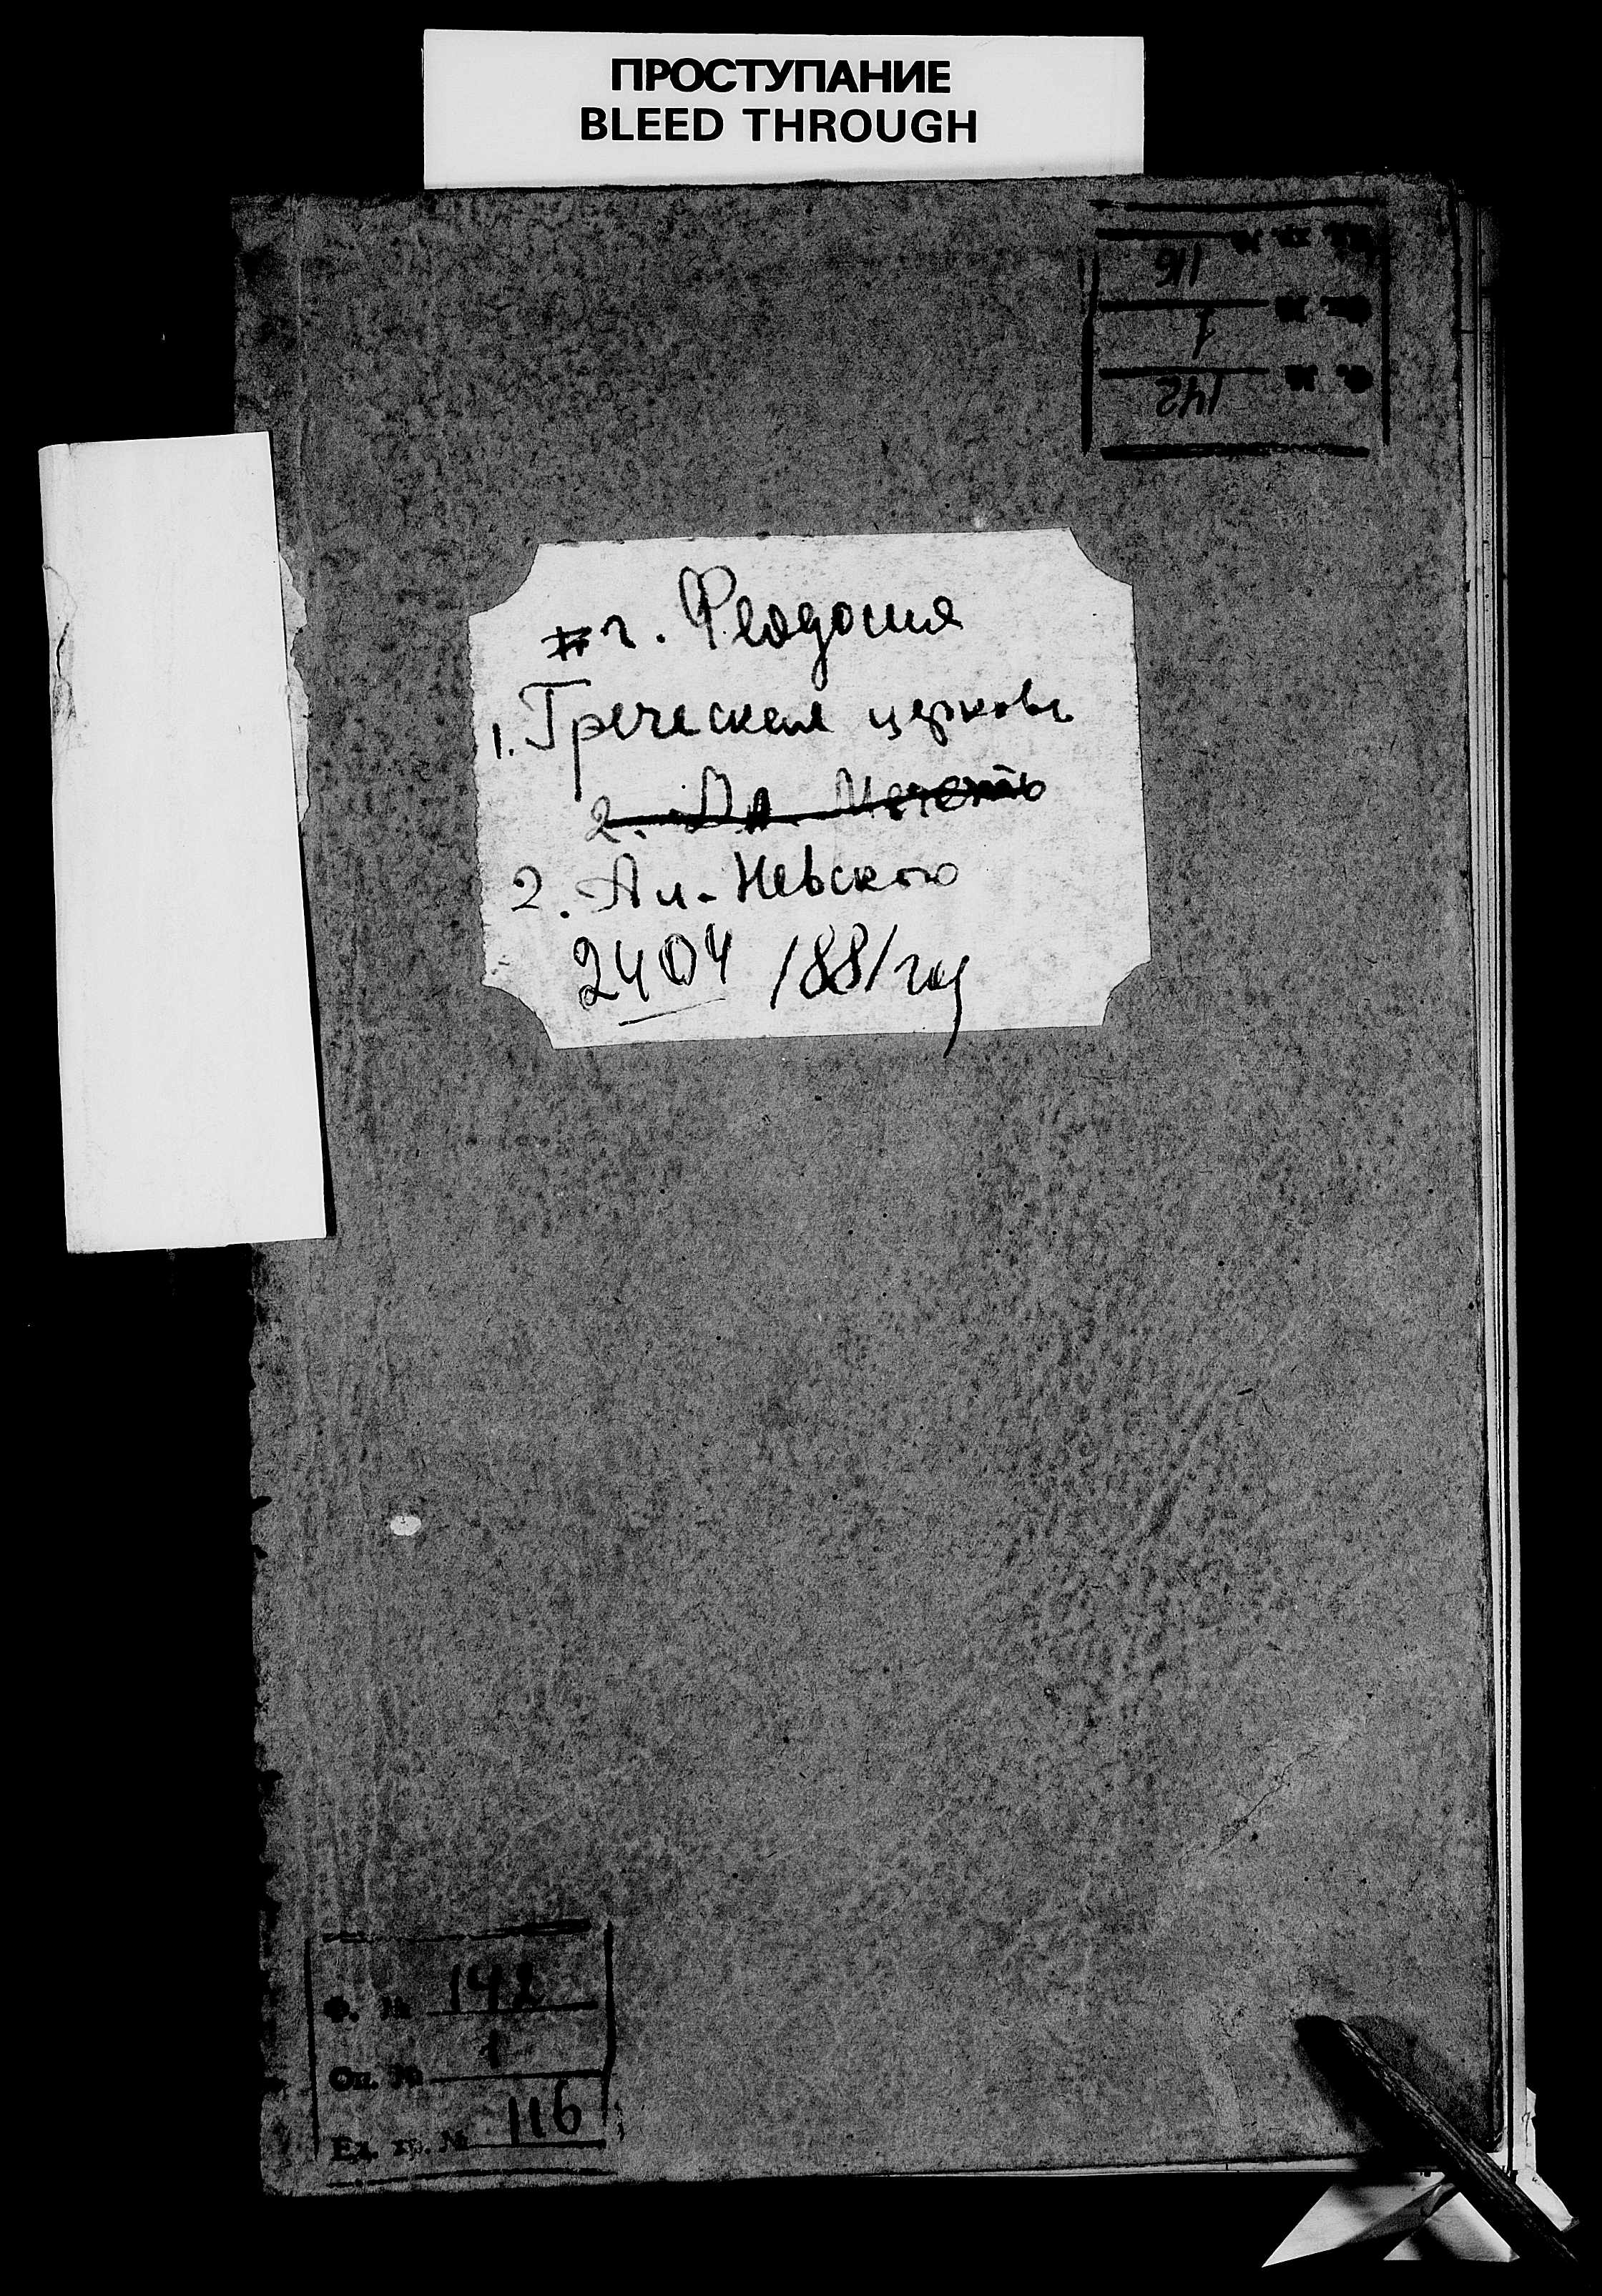 ПРОСТУПАНИЕ
BLEED THROUGH
Ед. хр. № 116
Оп. № 1
Ф. № 142
г. Феодосия
1. Греческая церковь
2. Ал. Мечеть
2. Ал-Невского
2404 1881 год
Ф. № 142
Оп. № 1
Ед. хр. № 116